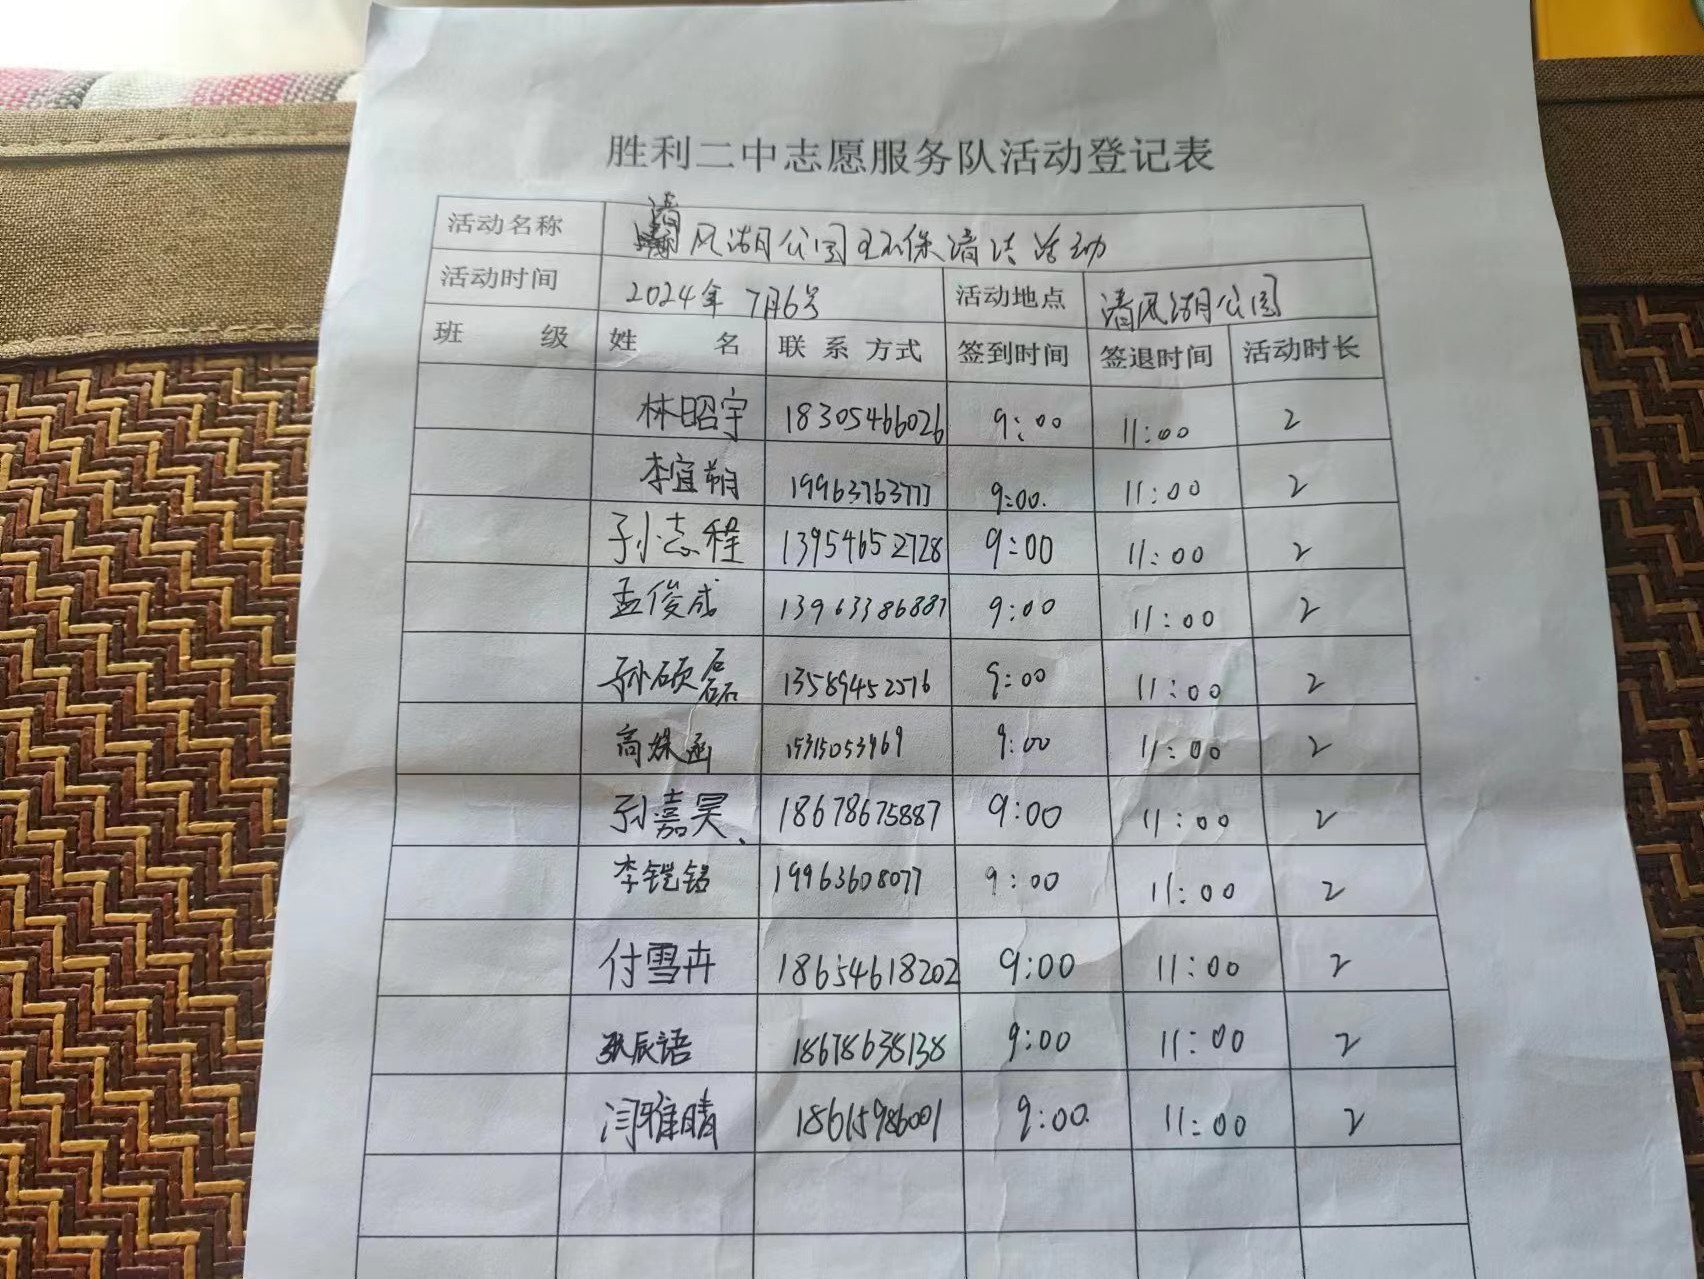 胜利二中志愿服务队活动登记表
活动名称 清风湖公园环保清洁活动
活动时间 2024年7月6号 活动地点 清风湖公园
班 级 姓 名 联系方式 签到时间 签退时间 活动时长
林昭宇 18305466026 9:00 11:00 2
李宜朔 19963763777 9:00. 11:00 2
孙志程 13954652728 9:00 11:00 2
孟俊成 13963386887 9:00 11:00 2
孙硕磊 13589452576 9:00 11:00 2
高姝函 15315053969 9:00 11:00 2
孙嘉昊、 18678675887 9:00 11:00 2
李铠铭 19963608077 9:00 11:00 2
付雪卉 18654618202 9:00 11:00 2
张辰语 18678638138 9:00 11:00 2
闫雅晴 18615986001 9:00. 11:00 2